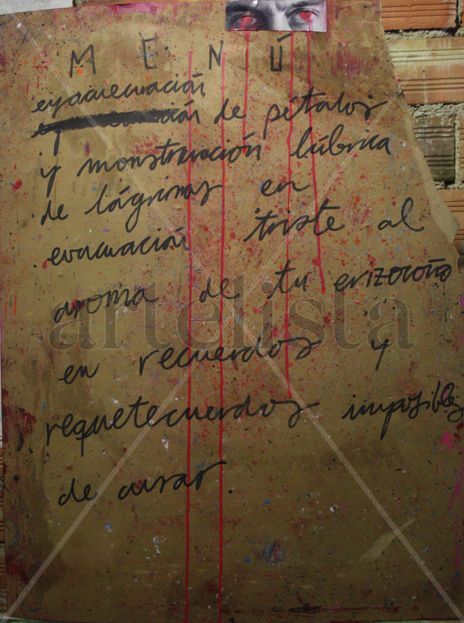 MENÚ
eyaculación
de pétalos
y monstruación lúbrica
de lágrimas en
evacuación triste al
aroma de tu erizocoño
en recuerdos y
requetecuerdos imposibles
de curar
artelista